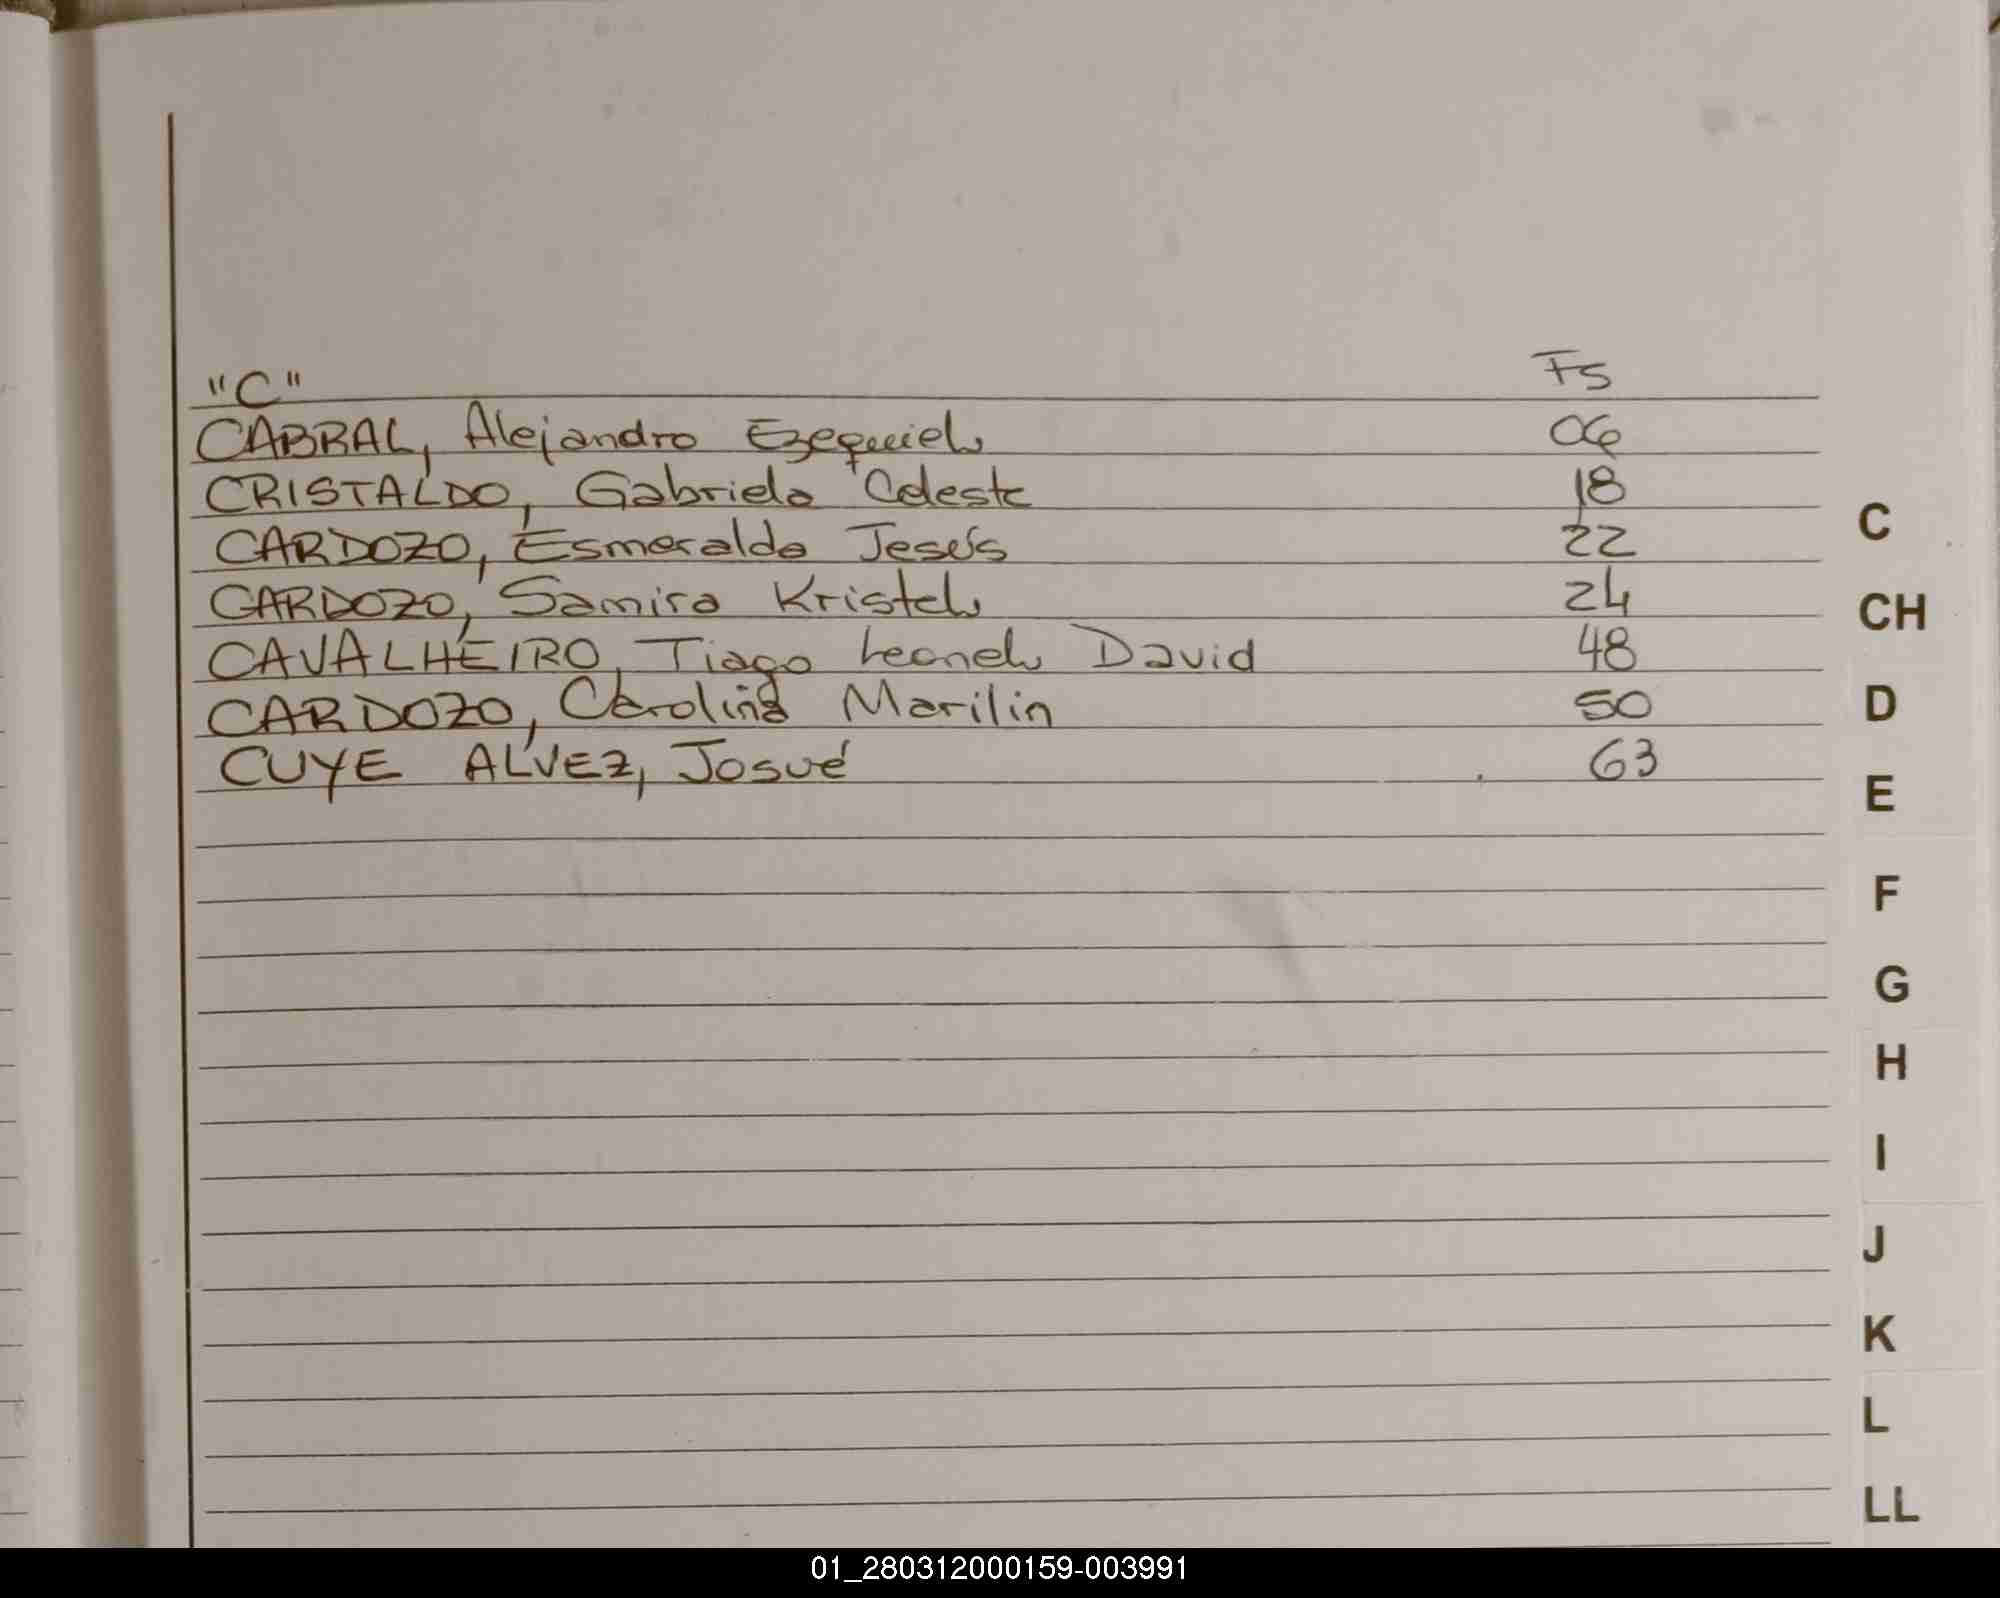 "C" Fs
CABRAL, Alejandro Ezequiel 06
CRISTALDO, Gabriela Celeste 18
CARDOZO, Esmeralda Jesús 22
CARDOZO, Samira Kristel 24
CAVALHEIRO, Tiago Leonel David 48
CARDOZO, Carolina Marilin 50
CUYE ALVEZ, Josué 63
C
CH
D
E
F
G
H
I
J
K
L
LL
01_280312000159-003991